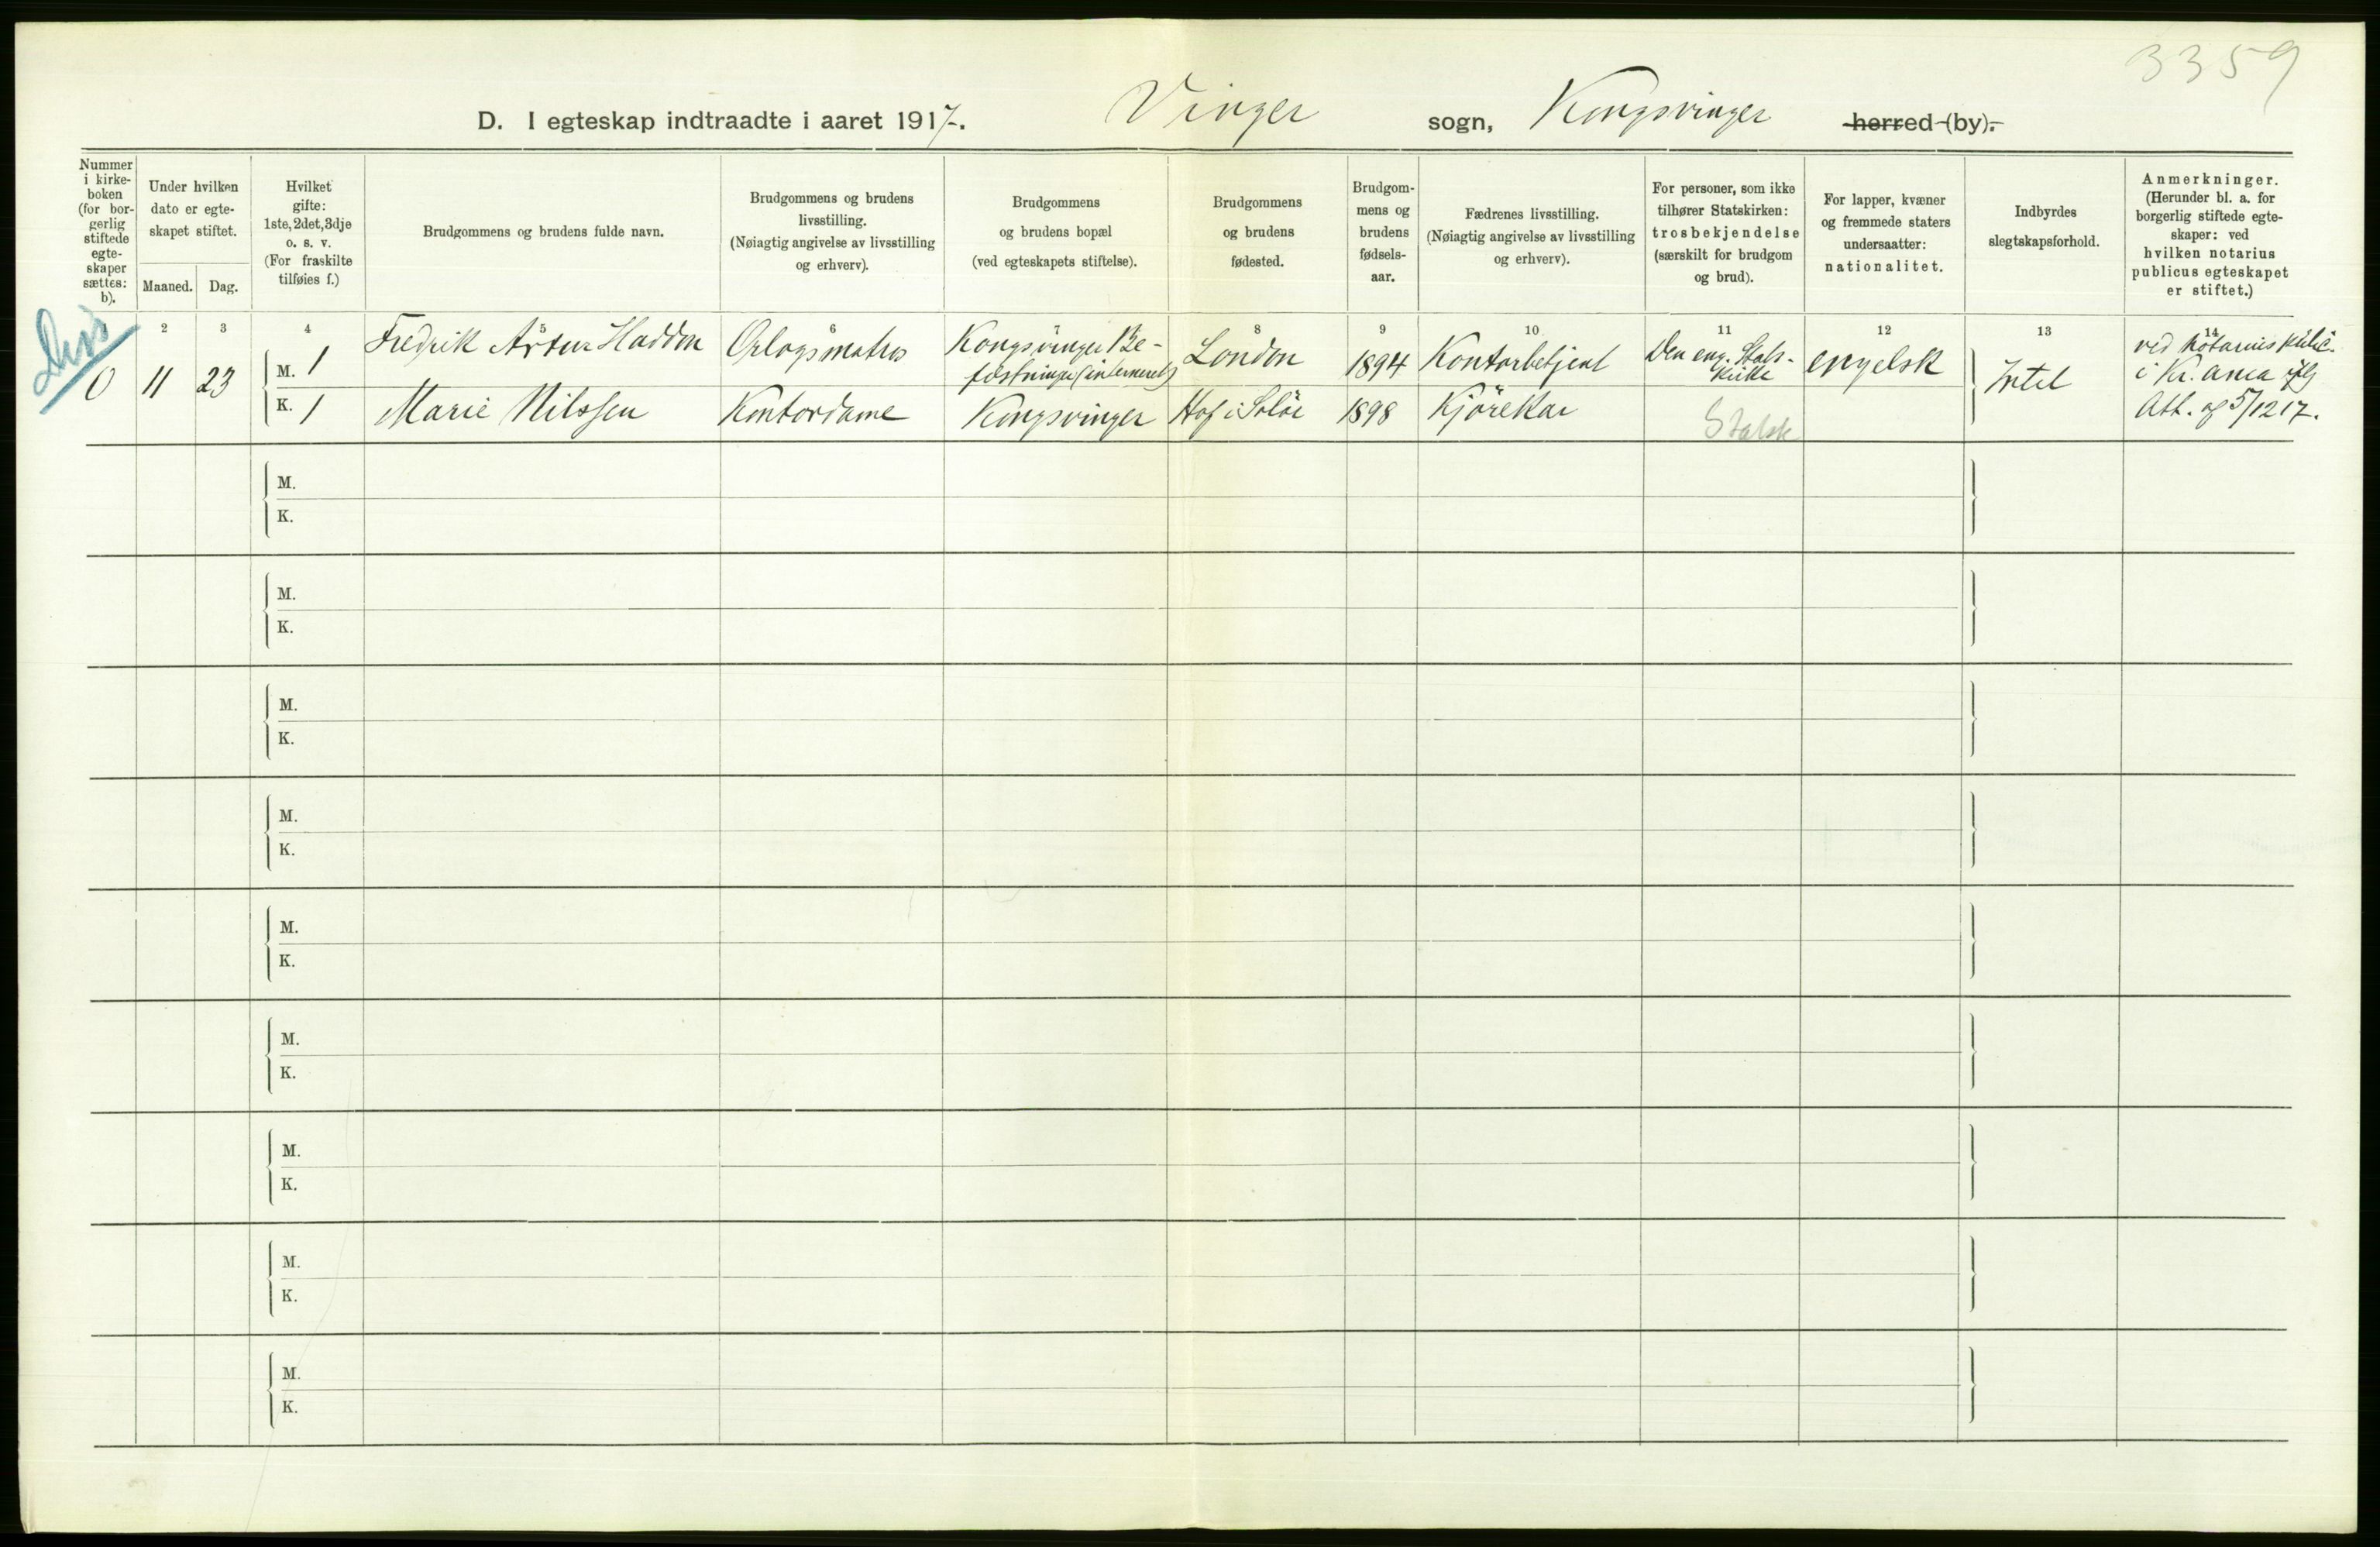 3359
D. I egteskap indtraadte i aaret 1917. Vinger sogn, Kongsvinger herred (by).
Nummer i kirkeboken (for borgerlig stiftede egteskaper sættes: b).
Under hvilken dato er egteskapet stiftet.
Maaned. Dag.
Hvilket gifte: 1ste, 2det, 3dje o. s. v. (For fraskilte tilføies f.)
Brudgommens og brudens fulde navn.
Brudgommens og brudens livsstilling. (Nøiagtig angivelse av livsstilling og erhverv).
Brudgommens og brudens bopæl (ved egteskapets stiftelse).
Brudgommens og brudens fødested.
Brudgommens og brudens fødselsaar.
Fædrenes livsstilling. (Nøiagtig angivelse av livsstilling og erhverv).
For personer, som ikke tilhører Statskirken: trosbekjendelse (særskilt for brudgom og brud).
For lapper, kvæner og fremmede staters undersaatter: nationalitet.
Indbyrdes slegtskapsforhold.
Anmerkninger. (Herunder bl. a. for borgerlig stiftede egteskaper: ved hvilken notarius publicus egteskapet er stiftet.)
1 2 3 4 5 6 7 8 9 10 11 12 13 14
0 11 23
M. 1 Fredrik Artur Haddon Orlogsmatros Kongsvinger Befæstninger (interneret) London 1894 Kontorbetjent Den eng. Statskirke engelsk
K. 1 Marie Nilssen Kontordame Kongsvinger Hof i Solør 1898 Kjørekar Statsk
Intet
ved notarius public.
i Kr.ania iflg
Att. af 5/12 17.
M.
K.
M.
K.
M.
K.
M.
K.
M.
K.
M.
K.
M.
K.
M.
K.
M.
K.